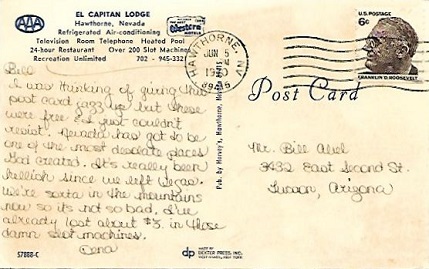 AAA
EL CAPITAN LODGE
Hawthorne, Nevada
Refrigerated Air-conditioning
Television Room Telephone Heated Pool
24-hour Restaurant Over 200 Slot Machines
Recreation Unlimited 702 - 945-332
Best Western Motels
HAWTHORNE, NV
JUN 5
1970
89415
U.S. POSTAGE
6¢
FRANKLIN D. ROOSEVELT
Post Card
Bill
I was thinking of giving this
post card away but these
were free & I just couldn't
resist. Nevada has got to be
one of the most desolate places
God created. It's really been
hellish since we left Vegas.
We're sorta in the mountains
now so its not so bad. I've
already lost about $3. in those
damn slot machines.
Mr. Bill Abel
3432 East Second St.
Tucson, Arizona
Pub. by Harvey's, Hawthorne, Nevada 89415
57888-C
dp
MADE BY
DEXTER PRESS, INC.
WEST NYACK, NEW YORK